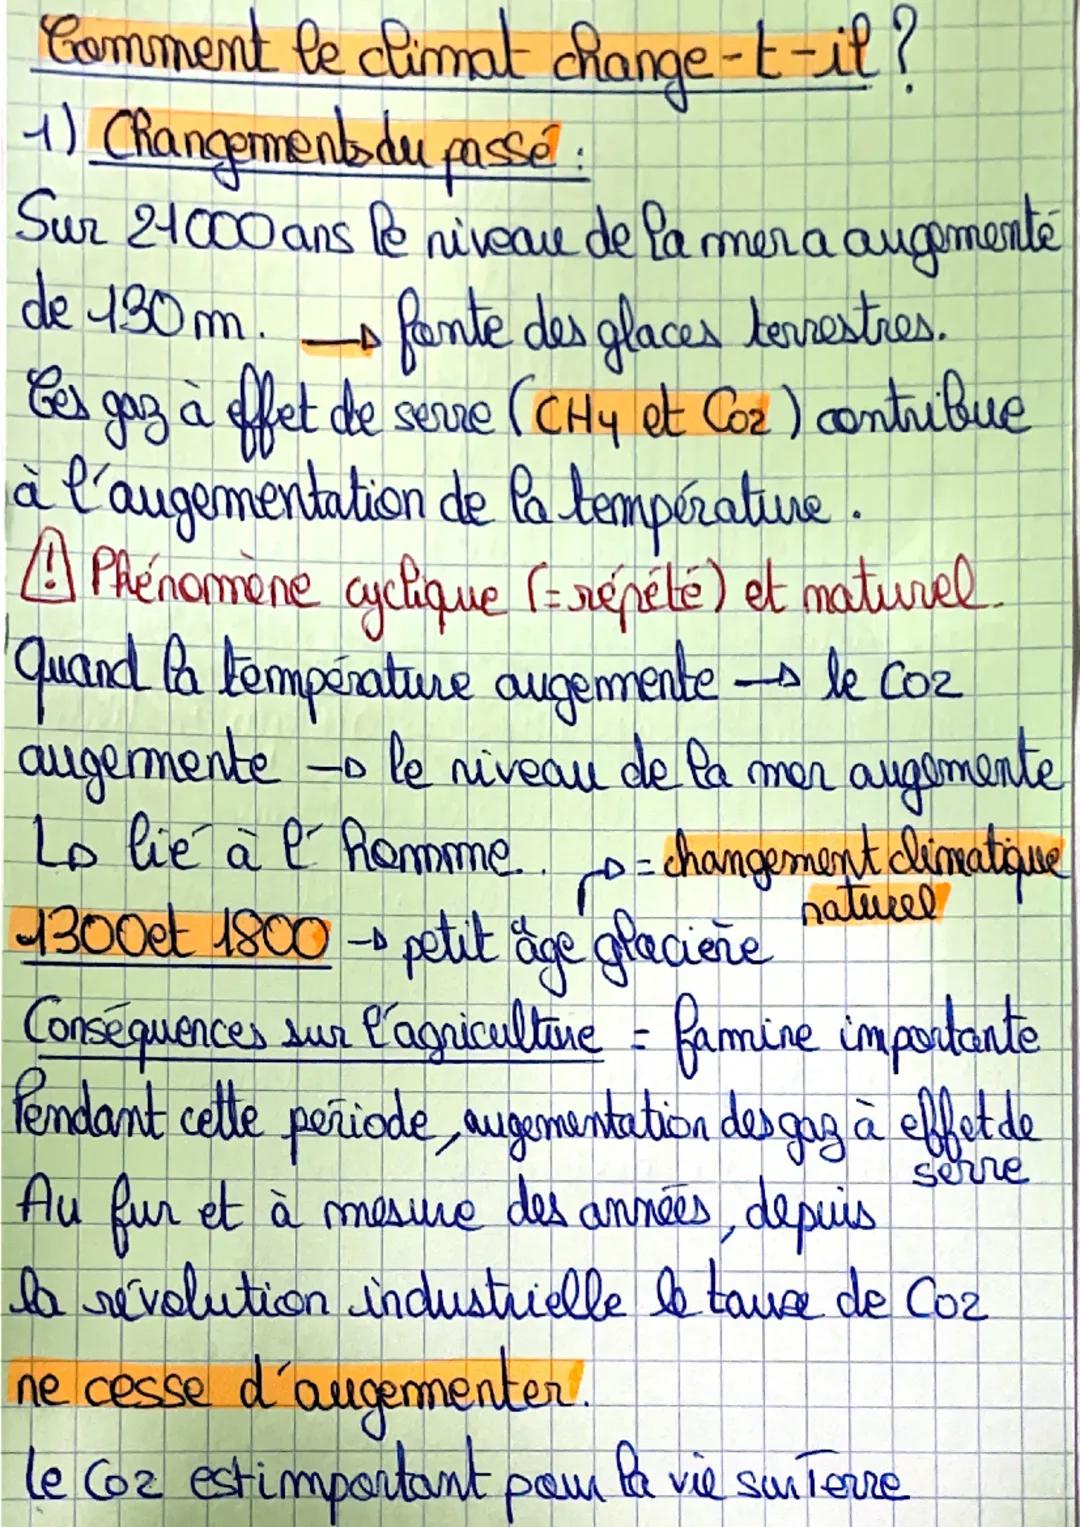 Comment le climat change-t-il ?
1) Changements du passé :
Sur 21000 ans le niveau de la mer a augementé
de 130 m. → fonte des glaces terrestres.
Ces gaz à effet de serre (CH4 et CO2) contribue
à l'augementation de la température.
⚠ Phénomène cyclique (= répété) et naturel.
Quand la température augemente → le CO2
augemente → le niveau de la mer augemente
↳ lié à l'Homme. → = changement climatique
naturel
1300 et 1800 → petit âge glacière
Conséquences sur l'agriculture = famine importante
Pendant cette période, augementation des gaz à effet de
serre
Au fur et à mesure des années, depuis
la révolution industrielle le taux de CO2
ne cesse d'augementer.
le CO2 est important pour la vie sur Terre